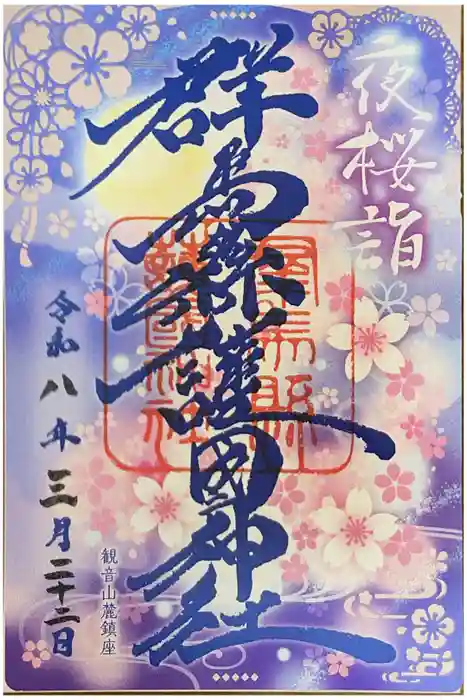 夜桜詣
群馬縣護國神社
群馬縣護國神社
令和八年三月二十二日
観音山麓鎮座